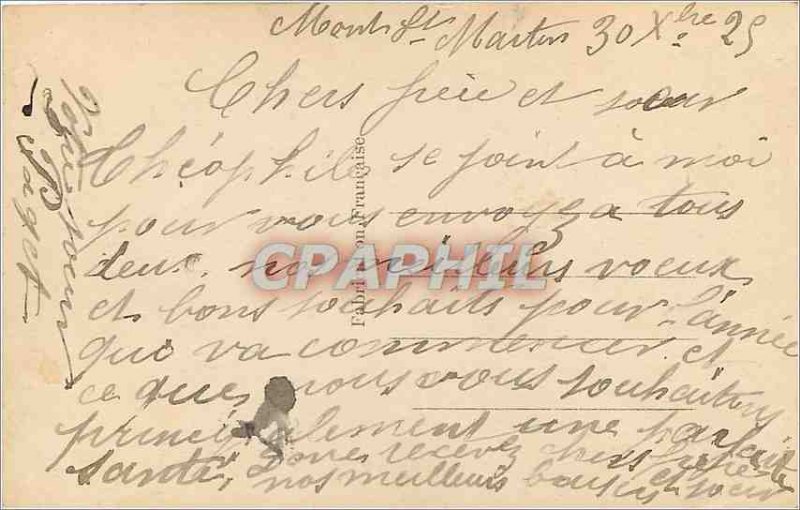 Mont St Martin 30 Xbre 25
Chers frère et soeur
Théophile se joint à moi
pour vous envoyez a tous
deux nos meilleurs voeux
et bons souhaits pour l'année
que va commencer et
ce que nous vous souhaitons
principalement une parfaite
santé, recevez chers frère
et soeur nos meilleurs baisers
Votre soeur
Paget
Fabrication Française
CPAPHIL